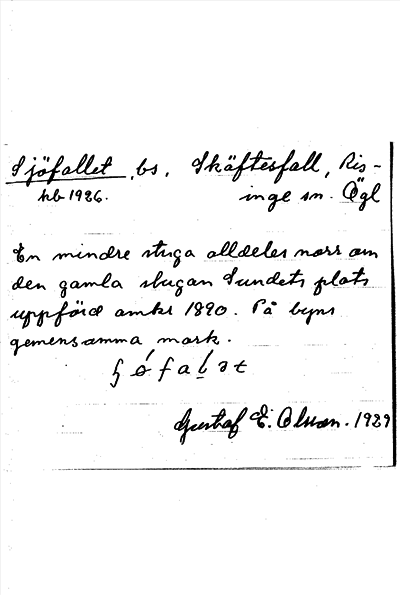 Sjöfallet, bs, Skäftesfall, Ris-
hb 1926. inge sn. Ögl
En mindre stuga alldeles norr om
den gamla stugan Sundets plats
uppförd omkr 1890. På byns
gemensamma mark.
Gustaf E. Olsson. 1929